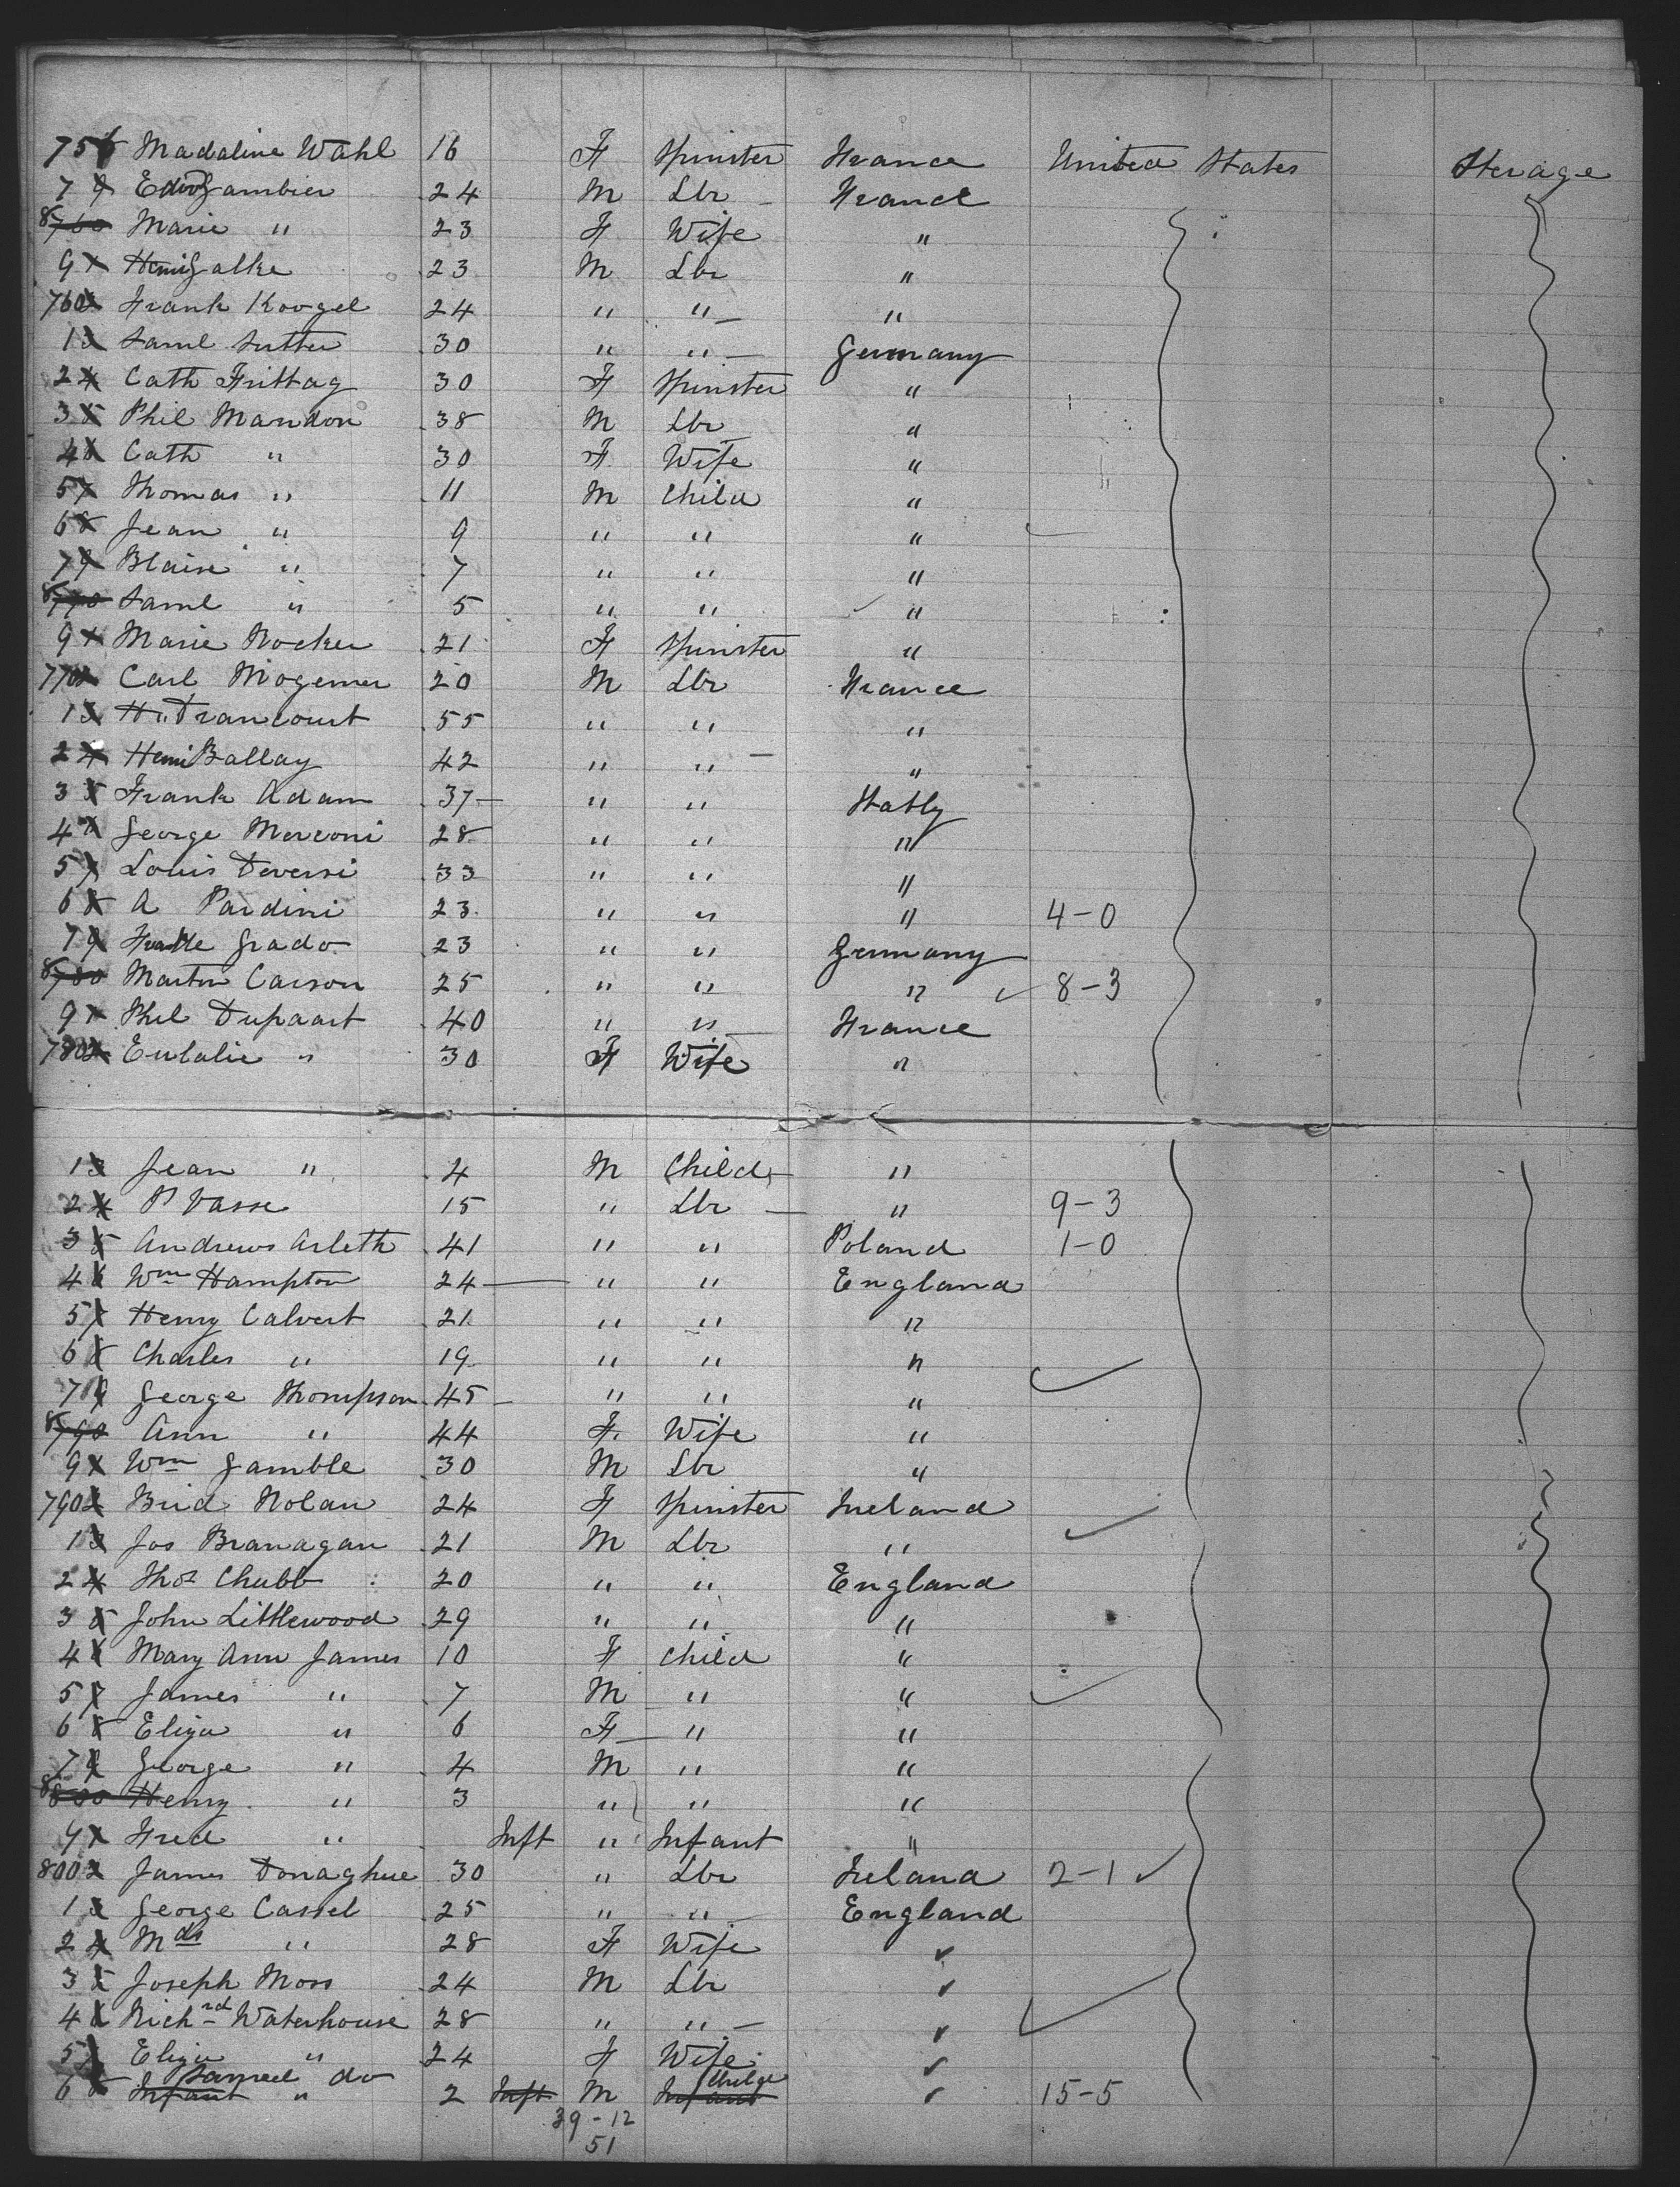 756 Madaline Wahl 16 F Spinster France United States Sterage
7 Edwd Gambier 24 M Lbr France
8 Marie " 23 F Wife "
9 Henri Galke 23 M Lbr "
760 Frank Koogel 24 " " "
1 Saml Sutter 30 " " Germany
2 Cath Frittag 30 F Spinster "
3 Phil Mandon 38 M Lbr "
4 Cath " 30 F Wife "
5 Thomas " 11 M Child "
6 Jean " 9 " " "
7 Blaise " 7 " " "
8 Saml " 5 " " "
9 Marie Rocker 21 F Spinster "
770 Carl Mogemer 20 M Lbr France
1 Hy Drancourt 55 " " "
2 Henri Ballay 42 " " "
3 Frank Adam 37 " " Itatly
4 George Merconi 28 " " "
5 Louis Deversi 33 " " "
6 A Pardini 23 " " " 4-0
7 Grado 23 " " Germany
8 Martin Carson 25 " " " 8-3
9 Phil Dupaart 40 " " France
780 Eulalie " 30 F Wife "
1 Jean " 4 M Child "
2 P Vasse 15 " Lbr " 9-3
3 Andrews Arleth 41 " " Poland 1-0
4 Wm Hampton 24 " " England
5 Henry Calvert 21 " " "
6 Charles " 19 " " "
7 George Thompson 45 " " "
8 Ann " 44 F Wife "
9 Wm Gamble 30 M Lbr "
790 Brid Nolan 24 F Spinster Ireland
1 Jos Branagan 21 M Lbr "
2 Thos Chubb 20 " " England
3 John Littlewood 29 " " "
4 Mary Ann James 10 F Child "
5 James " 7 M " "
6 Eliza " 6 F " "
7 George " 4 M " "
8 Henry " 3 " " "
9 Fred " Inft " Infant "
800 James Donaghue 30 " Lbr Ireland 2-1
1 George Cassel 25 " " England
2 Mds " 28 F Wife "
3 Joseph Moss 24 M Lbr "
4 Richrd Waterhouse 28 " " "
5 Eliza " 24 F Wife "
Samuel do
6 Infant " 2 Inft M Infant " 15-5
39-12
51